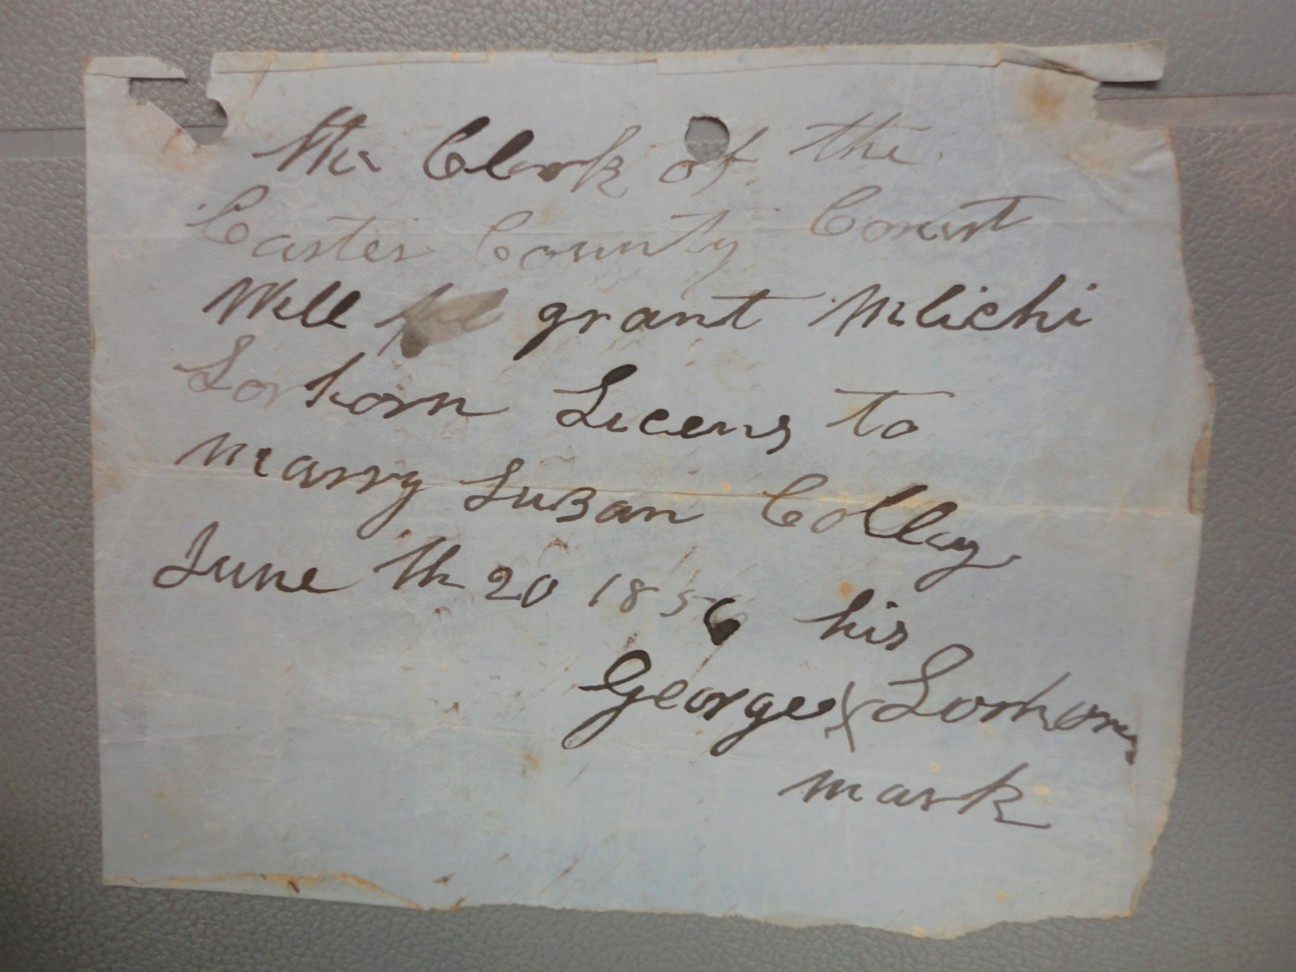 the Clark of the
Carter County Court
Will grant Milichi
Sorhorn Licens to
marry Suzan Collay
June th 20 1856 his
George X Sorhorn
mark